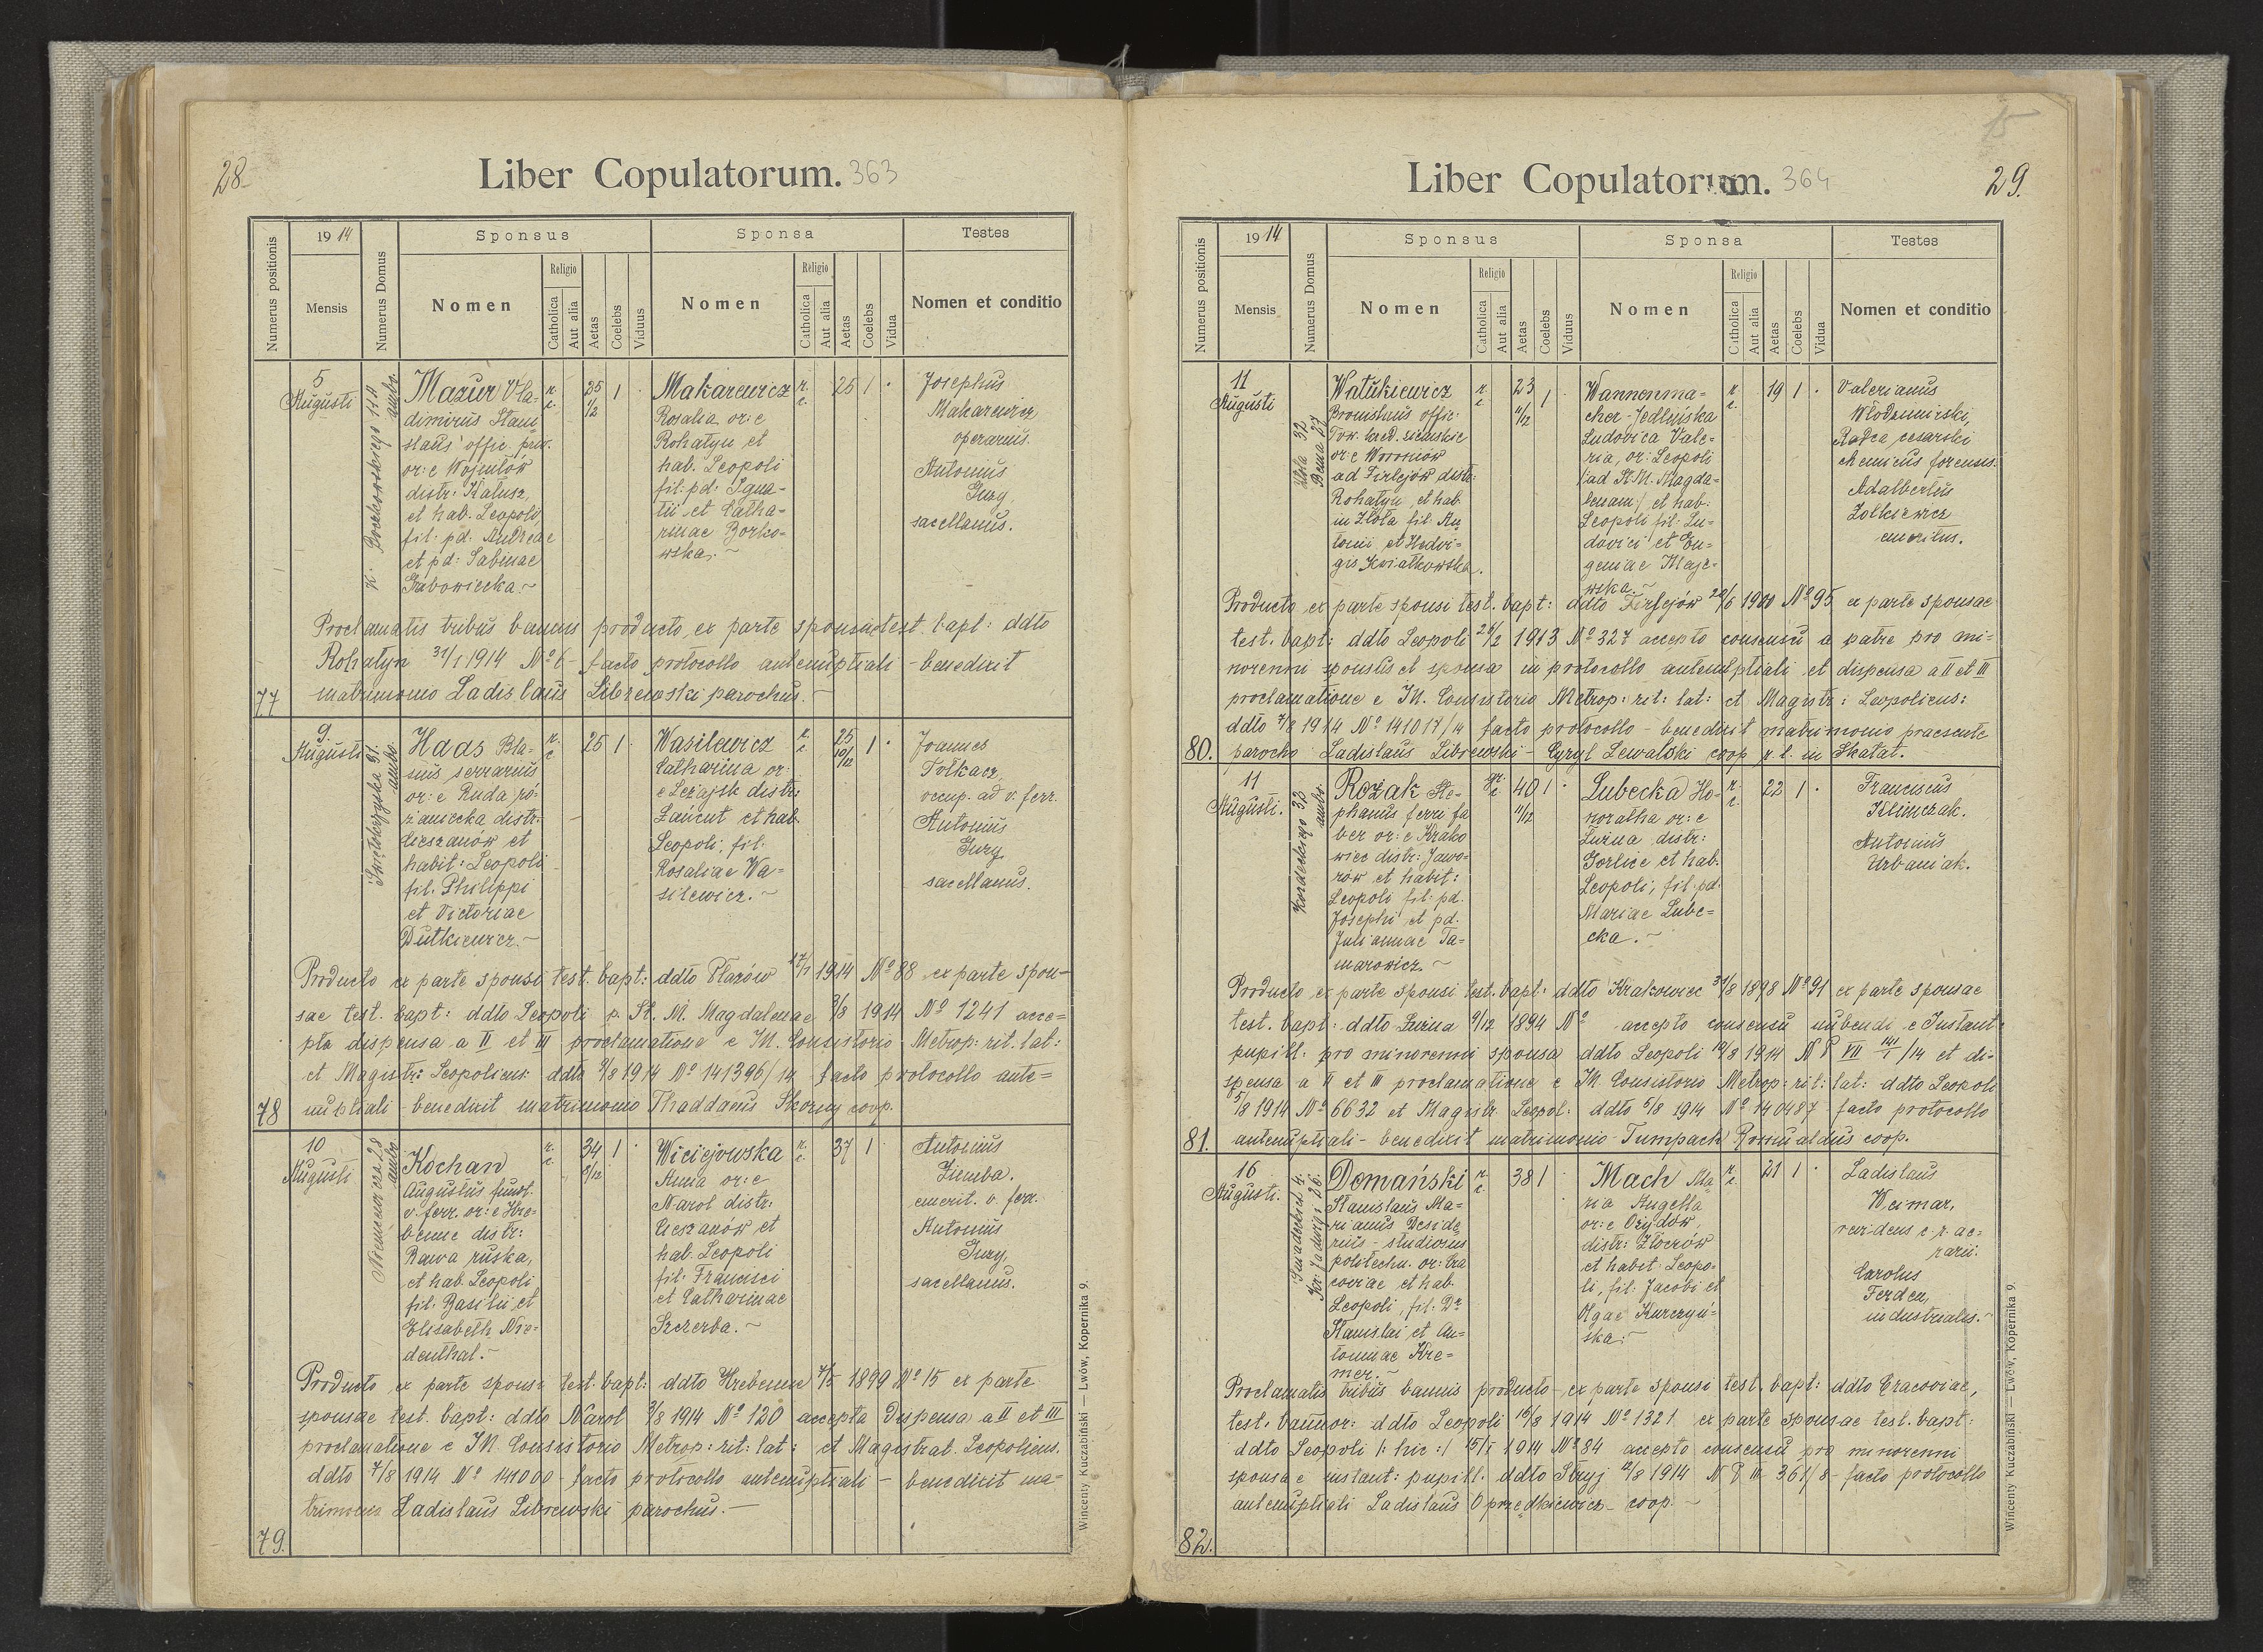 28.
Liber Copulatorum. 363
Numerus positionis
1914
Mensis
Numerus Domus
Sponsus
Nomen
Religio
Catholica
Aut alia
Aetas
Coelebs
Viduus
Sponsa
Nomen
Religio
Catholica
Aut alia
Aetas
Coelebs
Vidua
Testes
Nomen et conditio
5
Augusti
ambo.
Mazur Vla-
dimirus Stani
slaus offic. priv.
or: e Wojniłów
distr: Kałusz,
et hab. Leopoli
fil: pd: Andreae
et pd: Sabinae
Grabowiecka.~
r. c.
25 1/2
1
Makarewicz
Rosalia or: e
Rohatyn et
hab. Leopoli
fil: pd: Igna-
tii et Catha-
rinae Borko-
wska.~
r. c.
25
1
Josephus
Makarewicz
operarius.
Antonius
Jurg,
sacellanus.
Proclamatis tribus bannis producto ex parte sponsae test. bapt: ddto
Rohatyn 31/1 1914 No 6 - facto protocollo antenuptiali - benedixit
77 matrimonio Ladislaus Librewski parochus.~
9.
Augusti
Świętokrzyska 91.
ambo
Haas Bla-
sius serrarius
or: e Ruda ró-
żaniecka distr:
Cieszanów et
habit: Leopoli
fil. Philippi
et Victoriae
Dutkiewicz.~
r. c
25
1
Wasilewicz
Catharina or:
e Leżajsk distr:
Łańcut et hab.
Leopoli, fil.
Rosaliae Wa-
silewicz.~
r. c
25 10/12
1
Joannes
Tołkacz,
occup. ad v. ferr.
Antonius
Jurg
sacellanus.
Producto ex parte sponsi test. bapt: ddto Płazów 17/7 1914 No 88 ex parte spon-
sae test. bapt: ddto Leopoli p. St. M. Magdalenae 3/8 1914 No 1241 acce=
pta dispensa a II et III proclamatione e IM. Consistorio Metrop: rit. lat:
et Magistr: Leopoliens: ddto 8/8 1914 No 141396/14 - facto protocollo ante=
78 nuptiali - benedixit matrimonio Thaddaeus Skorny coop.
10
Augusti
Niemcewicza 28
ambo.
Kochan
Augustus funct.
v. ferr. or: e Hre-
benne distr:
Rawa ruska,
et hab. Leopoli
fil. Basilii et
Elisabeth Nie-
denthal.~
r. c.
34 2/12
1
Wiciejowska
Anna or: e
Narol distr:
Cieszanów et
hab. Leopoli
fil: Francisci
et Catharinae
Szczerba.~
r. c.
37
1
Antonius
Ziemba.
emerit. v. ferr.
Antonius
Jurg,
sacellanus.
Producto ex parte sponsi test. bapt: ddto Hrebenne 7/5 1899 No 15 ex parte
sponsae test. bapt: ddto Narol 3/8 1914 No 120 accepta dispensa a II et III
proclamatione e IM. Consistorio Metrop: rit: lat: et Magistrat. Leopoliens.
ddto 7/8 1914 No 141000 - facto protocollo antenuptiali - benedixit ma-
trimonio Ladislaus Librewski parochus.-
79.
Wincenty Kuczabiński — Lwów, Kopernika 9.
15
Liber Copulatorum. 364
29.
Numerus positionis
1914
Mensis
Numerus Domus
Sponsus
Nomen
Religio
Catholica
Aut alia
Aetas
Coelebs
Viduus
Sponsa
Nomen
Religio
Catholica
Aut alia
Aetas
Coelebs
Vidua
Testes
Nomen et conditio
11
Augusti
Złota 32
Bema 27
Watukiewicz
Bronislaus offic.
Tow. kred. ziemskie
or: e Woronów
ad Firlejów distr:
Rohatyn, et hab
in Złota fil: An
tonii et Hedvi-
gis Kwiatkowska.
r. c
23 11/12
1
Wannenma=
cher-Jedlińska
Ludovica Vale-
ria, or: Leopoli
/ad St. M. Magda-
lenam/ et hab:
Leopoli fil: Lu-
dovici et Eu-
geniae Maje-
wska.~
r. c.
19
1
Valerianus
Włodzimirski,
Radca cesarski
chemicus forensis.
Adalbertus
Zołkiewicz
emeritus.
Producto ex parte sponsi test. bapt: ddto Firlejów 22/6 1900 No 95 ex parte sponsae
test. bapt: ddto Leopoli 21/2 1913 No 327 accepto consensu a patre pro mi=
norenni sponsus et sponsa in protocollo antenuptiali et dispensa a II et III
proclamatione e IM. Consistorio Metrop: rit: lat: et Magistr: Leopoliens:
ddto 7/8 1914 No 141017/14 facto protocollo - benedixit matrimonio praesente
80. parocho Ladislaus Librewski - Cyryl Lewalski coop r. l. in Skałat.
11
Augusti.
Kordeckiego 33
ambo.
Rożak Ste-
phanus ferri fa
ber or: e Krako
wiec distr: Jawo-
rów et habit:
Leopoli fil: pd.
Josephi et pd.
Juliannae Ta-
marowicz.~
gr. c
40 11/12
1
Lubecka Ho-
noratha or: e
Łużna distr:
Gorlice et hab.
Leopoli, fil: pd.
Mariae Lube=
cka.~
r. c.
22
1
Franciscus
Klimczak.
Antonius
Urbaniak.
Producto ex parte sponsi test. bapt. ddto Krakowiec 31/8 1898 No 91 ex parte sponsae
test. bapt: ddto Łużna 4/12 1894 No accepto consensu nubendi e Instant:
pupill. pro minorenni sponsa ddto Leopoli 10/8 1914 N P VII 141/1/14 et di-
spensa a II et III proclamatione e IM. Consistorio Metrop: rit: lat: ddto Leopoli
5/8 1914 No 6632 et Magistr. Leopol: ddto 5/8 1914 No 140487 facto protocollo
81. antenuptiali - benedixit matrimonio Tumpach Romualdus coop.
16
Augusti.
Śniadeckich 4.
Kr. Jadwigi 26.
Domański
Stanislaus Ma=
rianus Deside
rius - studiosus
politechn. or: Cra
coviae et hab.
Leopoli, fil: Dr
Stanislai et An=
toninae Kre=
mer.~
r. c.
38
1
Mach Ma
ria Angella
or: e Ożydów,
distr: Złoczów
et habit: Leopo-
li, fil: Jacobi et
Olgae Kurczyń-
ska.~
r. c.
21
1
Ladislaus
Weimar,
revidens c. r. ae=
rarii.
Carolus
Ferden,
industrialis.~
Proclamatis tribus bannis producto - ex parte sponsi test. bapt: ddto Cracoviae,
test. bannor: ddto Leopoli 16/8 1914 No 1321 ex parte sponsae test. bapt:
ddto Leopoli /: hic :/ 15/1 1914 No 84 accepto consensu pro minorenni
sponsa e instant: pupill. ddto Stryj 12/8 1914 N P III 361/8 - facto protocollo
antenuptiali Ladislaus Oprzędkiewicz - coop.~
82.
Wincenty Kuczabiński — Lwów, Kopernika 9.